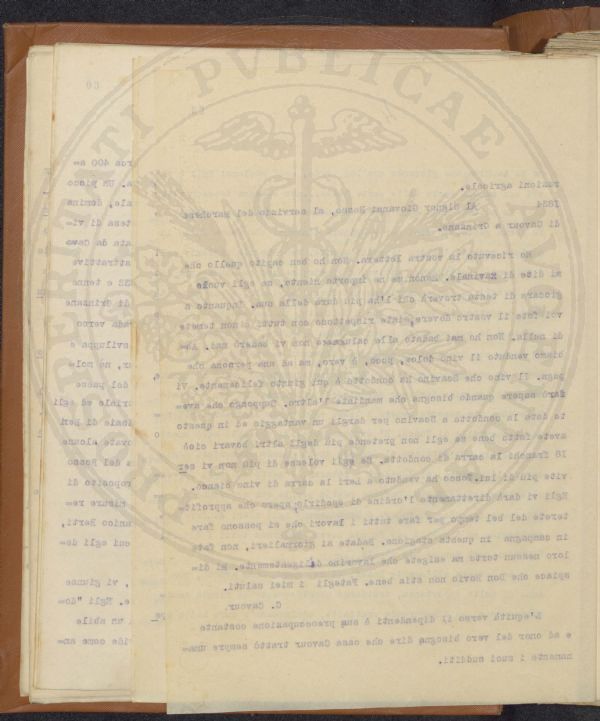 PROSPERITATI PVBLICAE AVGENDAE
razioni agricole.
1834
Al Signor Giovanni Bosso, al servizio del marchese
di Cavour a Grinzane.
Ho ricevuto la vostra lettera. Non ho ben capito quello che
mi dite di Ravinale. ne importa niente, se egli vuole
giocare di testa troverà chi l'ha più dura della sua. Inquanto a
voi fate il vostro dovere, siate rispettoso con tutti e non temete
di nulla. Non ho mai badato alle calunnie e non vi baderò mai. Ab-
biamo venduto il vino dolce, poco, è vero, ma ad una persona che
paga. Il vino che Boavino ha condotto è qui giunto felicemente. Vi
farò sapere quando bisogna che mandiate l'altro. Suppongo che ave-
te dato la condotta a Boavino per dargli un vantaggio ed in questo
avete fatto bene se egli non pretende più degli altri bovari cioè
10 franchi la carra di condotta. Se egli volesse di più non vi ser
vite più di lui. Tosco ha venduto a Leri la carra di vino bianco.
Egli vi darà direttamente l'ordine di spedirlo; spero che approfit-
terete del bel tempo per fare tutti i lavori che si possono fare
in campagna in questa stagione. Badate ai giornalieri, non fate
loro nessun torto ma esigete che lavorino diligentemente. Mi di-
spiace che Don Bovio non stia bene. Fategli i miei saluti.
C. Cavour.
L'equità verso i dipendenti è sua preoccupazione costante
e ad onor del vero bisogna dire che casa Cavour trattò sempre uma-
namente i suoi sudditi.